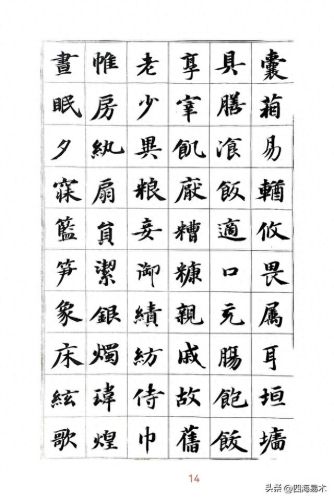 囊箱易輶攸畏属耳垣墻
具膳飡飯適口充腸飽飫
享宰飢厭糟糠親戚故舊
老少異粮妾御績紡侍巾
帷房紈扇員潔銀燭瑋煌
晝眠夕寐籃笋象床絃歌
14
头条 @四海易木